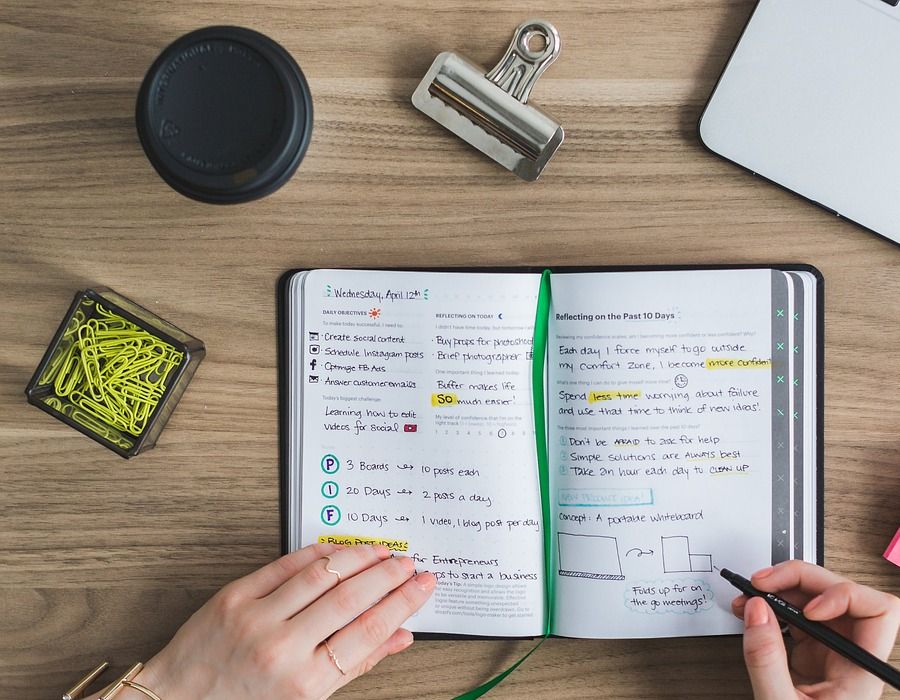 Wednesday, April 12th
DAILY OBJECTIVES
To make today successful, I need to:
Create social content
Schedule Instagram posts
Optimize FB Ads
Answer customer emails
Today's biggest challenge:
Learning how to edit
videos for social
P 3 Boards → 10 posts each
I 20 Days → 2 posts a day
F 10 Days → 1 video, 1 blog post per day
BLOG POST IDEAS:
for Entrepreneurs
to start a business
REFLECTING ON TODAY
I didn't have time today, but tomorrow I will
Buy props for photoshoot
Brief photographer
One important thing I learned today:
Buffer makes life
SO much easier!
My level of confidence that I'm on the
right track
1 2 3 4 5 6 7 8 9
Today's Tip: A simple logo design allows
for easy recognition and allows the logo
to be versatile and memorable. Effective
logos feature something unexpected
or unique without being overdrawn. Go to
Reflecting on the Past 10 Days
Reviewing my confidence scales, am I becoming more confident or less confident? Why?
Each day I force myself to go outside
my comfort zone, I become more confident
What's one thing I can do to give myself more time?
Spend less time worrying about failure
and use that time to think of new ideas!
The three most important things I learned over the past 10 days:
1 Don't be AFRAID to ask for help
2 Simple solutions are ALWAYS best
3 Take an hour each day to CLEAN UP
NEW PRODUCT IDEA!
Concept: A portable whiteboard
Folds up for on
the go meetings!